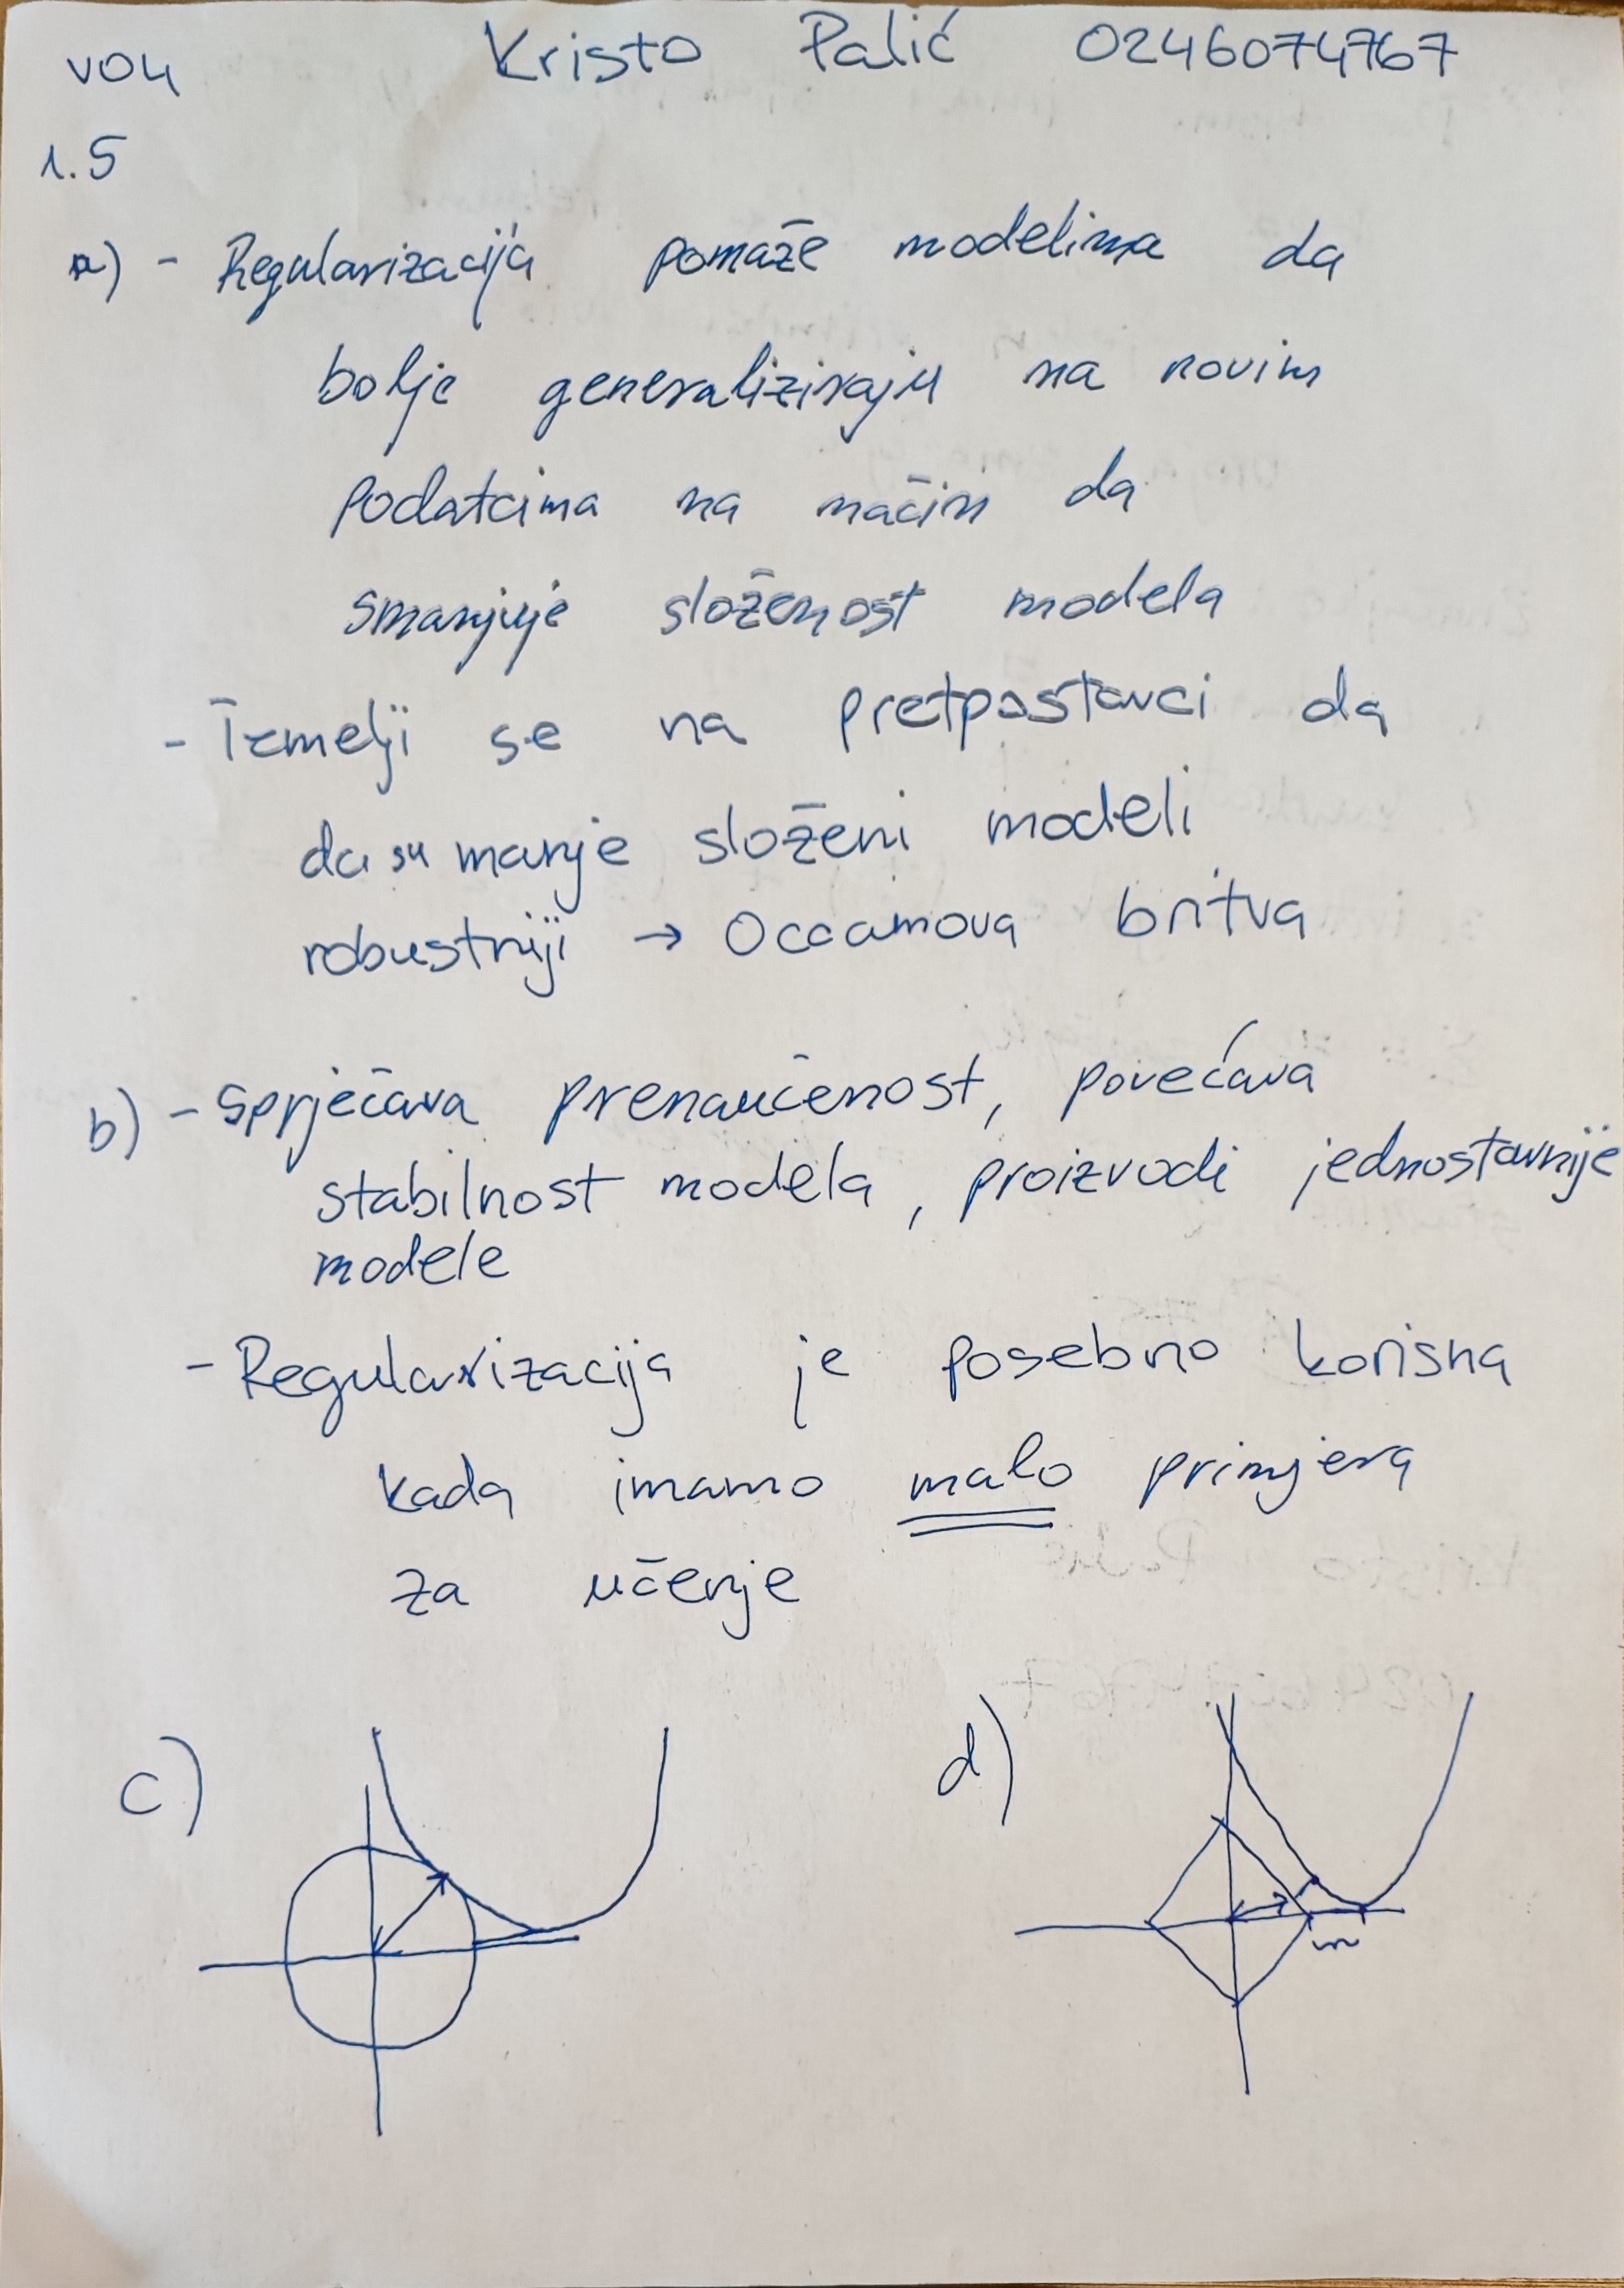 V04 Kristo Palić 0246074767
1.5
a) - Regularizacija pomaže modelima da
bolje generaliziraju na novim
podatcima na način da
smanjuje složenost modela
- Temelji se na pretpostavci da
da su manje složeni modeli
robustniji → Occamova britva
b) - Sprječava prenaučenost, povećava
stabilnost modela, proizvodi jednostavnije
modele
- Regularizacija je posebno korisna
kada imamo malo primjera
za učenje
c) d)